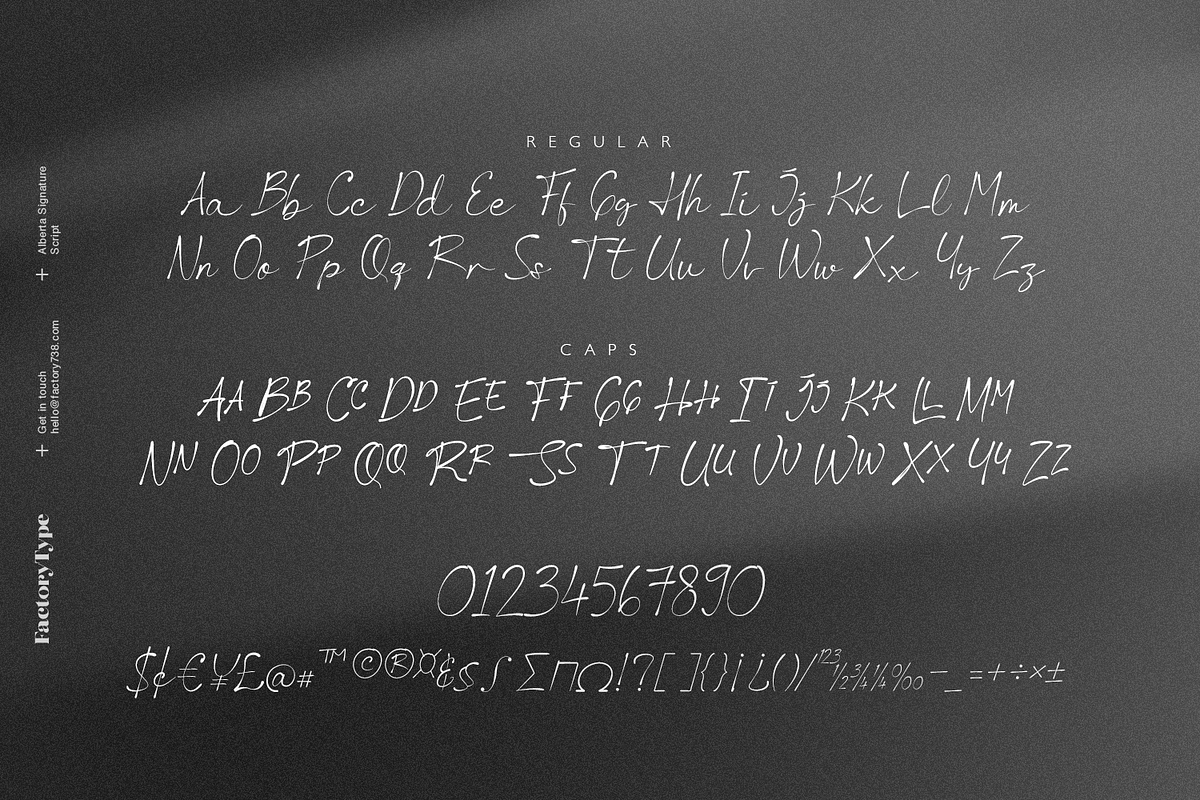 REGULAR
Aa Bb Cc Dd Ee Ff Gg Hh Ii Jj Kk Ll Mm
Nn Oo Pp Qq Rr Ss Tt Uu Vv Ww Xx Yy Zz
CAPS
AA BB CC DD EE FF GG HH II JJ KK LL MM
NN OO PP QQ RR SS TT UU VV WW XX YY ZZ
01234567890
$¢€¥£@#™©®¤&§∫∑∏Ω!?[]{}¡¿()/¹²³½¾¼%‰–_=+÷×±
+ Alberta Signature
Script
+ Get in touch
hello@factory738.com
FactoryType